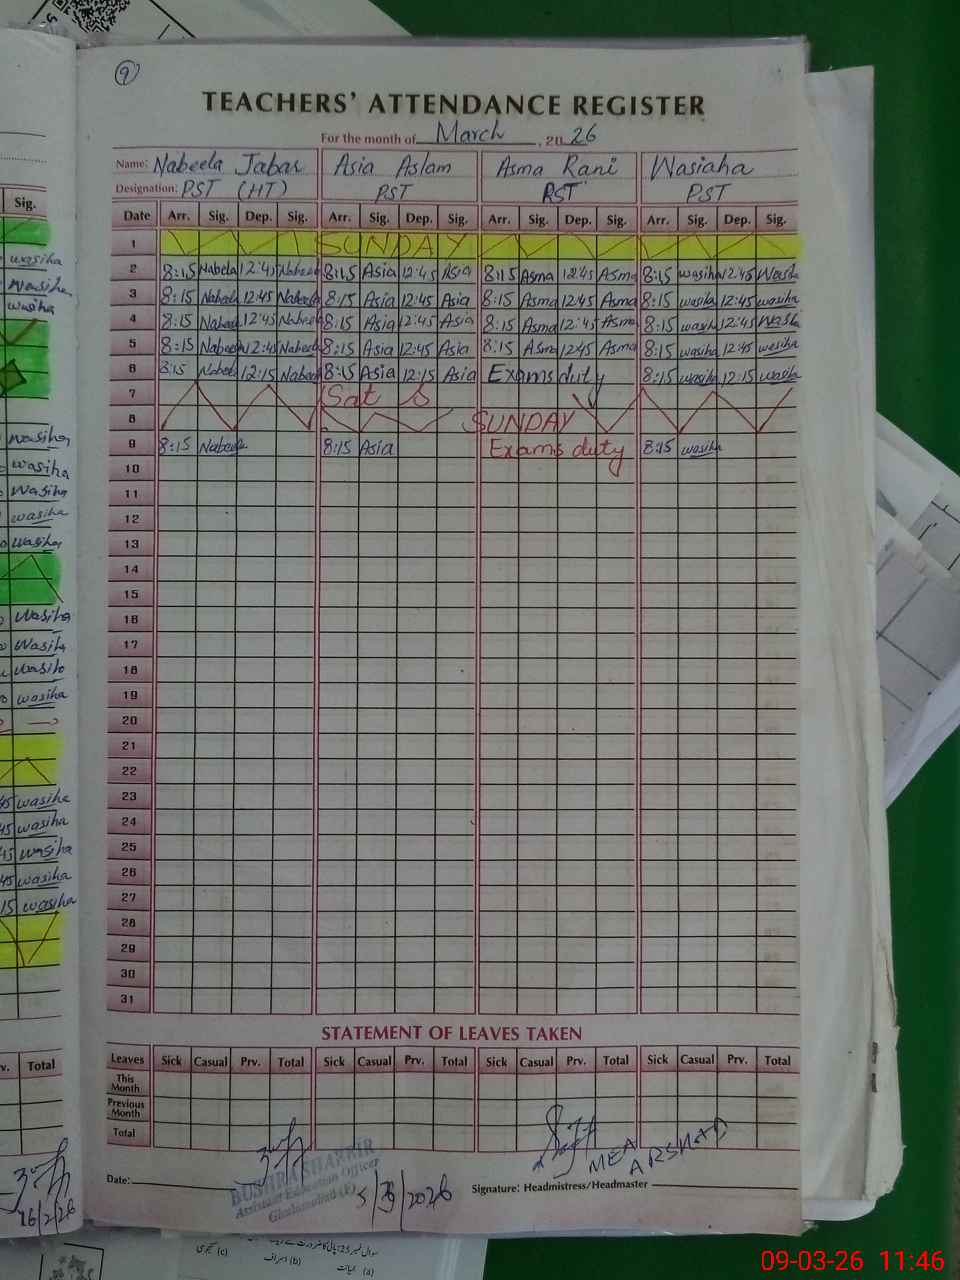 9
TEACHERS' ATTENDANCE REGISTER
For the month of March, 2026
Name: Nabeela Jabar Asia Aslam Asma Rani Wasiaha
Designation: PST (HT) PST PST PST
Date Arr. Sig. Dep. Sig. Arr. Sig. Dep. Sig. Arr. Sig. Dep. Sig. Arr. Sig. Dep. Sig.
1 SUNDAY
2 8:15 Nabela 12:45 Nabeela 8:15 Asia 12:45 Asia 8:15 Asma 12:45 Asma 8:15 wasiha 12:45 Wasiha
3 8:15 Nabeela 12:45 Nabeela 8:15 Asia 12:45 Asia 8:15 Asma 12:45 Asma 8:15 wasiha 12:45 wasiha
4 8:15 Nabeela 12:45 Nabeela 8:15 Asia 12:45 Asia 8:15 Asma 12:45 Asma 8:15 wasiha 12:45 Wasiha
5 8:15 Nabeela 12:45 Nabeela 8:15 Asia 12:45 Asia 8:15 Asma 12:45 Asma 8:15 wasiha 12:45 wesiha
6 8:15 Nabeela 12:15 Nabeela 8:15 Asia 12:15 Asia Exams duty 8:15 wasiha 12:15 wasiha
7 Sat
8 SUNDAY
9 8:15 Nabeela 8:15 Asia Exams duty 8:15 wasiha
10
11
12
13
14
15
16
17
18
19
20
21
22
23
24
25
26
27
28
29
30
31
STATEMENT OF LEAVES TAKEN
Leaves Sick Casual Prv. Total Sick Casual Prv. Total Sick Casual Prv. Total Sick Casual Prv. Total
This Month
Previous Month
Total
MEA ARSHAD
Date: Signature: Headmistress/Headmaster
BUSHRA SHABBIR
Assistant Education Officer
5/3/2026
Sig.
wasiha
Wasiha
wasiha
Wasiha
wasiha
Wasiha
wasiha
Wasiha
Wasiha
Wasiha
Wasiha
wasiha
45 wasiha
45 wasiha
45 wasiha
45 wasiha
15 wasiha
Total
16/2/26
(c)
(b)
(a)
09-03-26 11:46